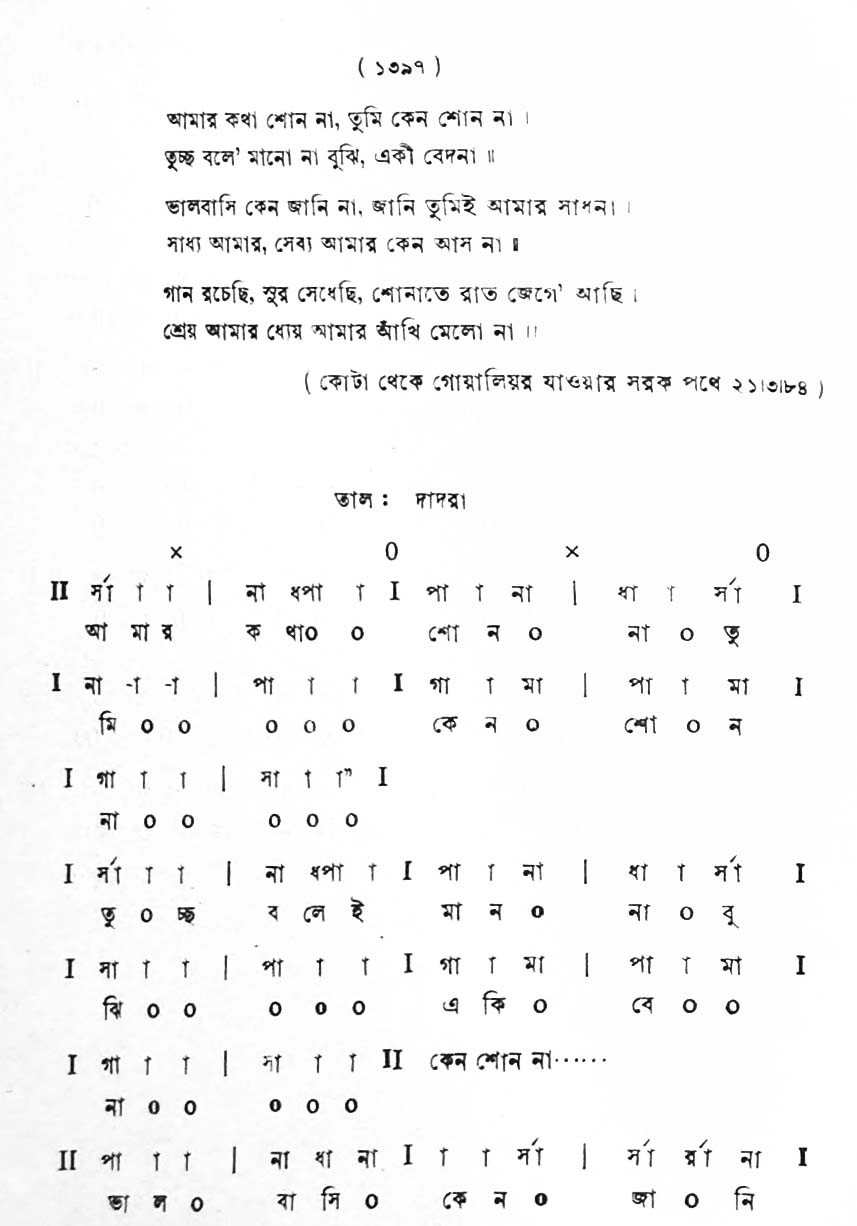 ( ১৩৯৭ )
আমার কথা শোন না, তুমি কেন শোন না ।
তুচ্ছ বলে' মানো না বুঝি, একী বেদনা ॥
ভালবাসি কেন জানি না, জানি তুমিই আমার সাধনা ।
সাধ্য আমার, সেব্য আমার কেন আস না ॥
গান রচেছি, সুর সেধেছি, শোনাতে রাত জেগে' আছি ।
শ্রেয় আমার ধ্যেয় আমার আঁখি মেলো না ॥
( কোটা থেকে গোয়ালিয়র যাওয়ার সরক পথে ২১।৩।৮৪ )
তাল : দাদরা
× 0 × 0
II র্সা া া | না ধপা া I পা া না | ধা া র্সা I
আ মা র ক থা০ ০ শো ন ০ না ০ তু
I না -া -া | পা া া I গা া মা | পা া মা I
মি ০ ০ ০ ০ ০ কে ন ০ শো ০ ন
I গা া া | সা া া" I
না ০ ০ ০ ০ ০
I র্সা া া | না ধপা া I পা া না | ধা া র্সা I
তু ০ চ্ছ ব লে ই মা ন ০ না ০ বু
I সা া া | পা া া I গা া মা | পা া মা I
ঝি ০ ০ ০ ০ ০ এ কি ০ বে ০ ০
I গা া া | সা া া II কেন শোন না······
না ০ ০ ০ ০ ০
II পা া া | না ধা না I া া র্সা | র্সা র্রা না I
ভা ল ০ বা সি ০ কে ন ০ জা ০ নি